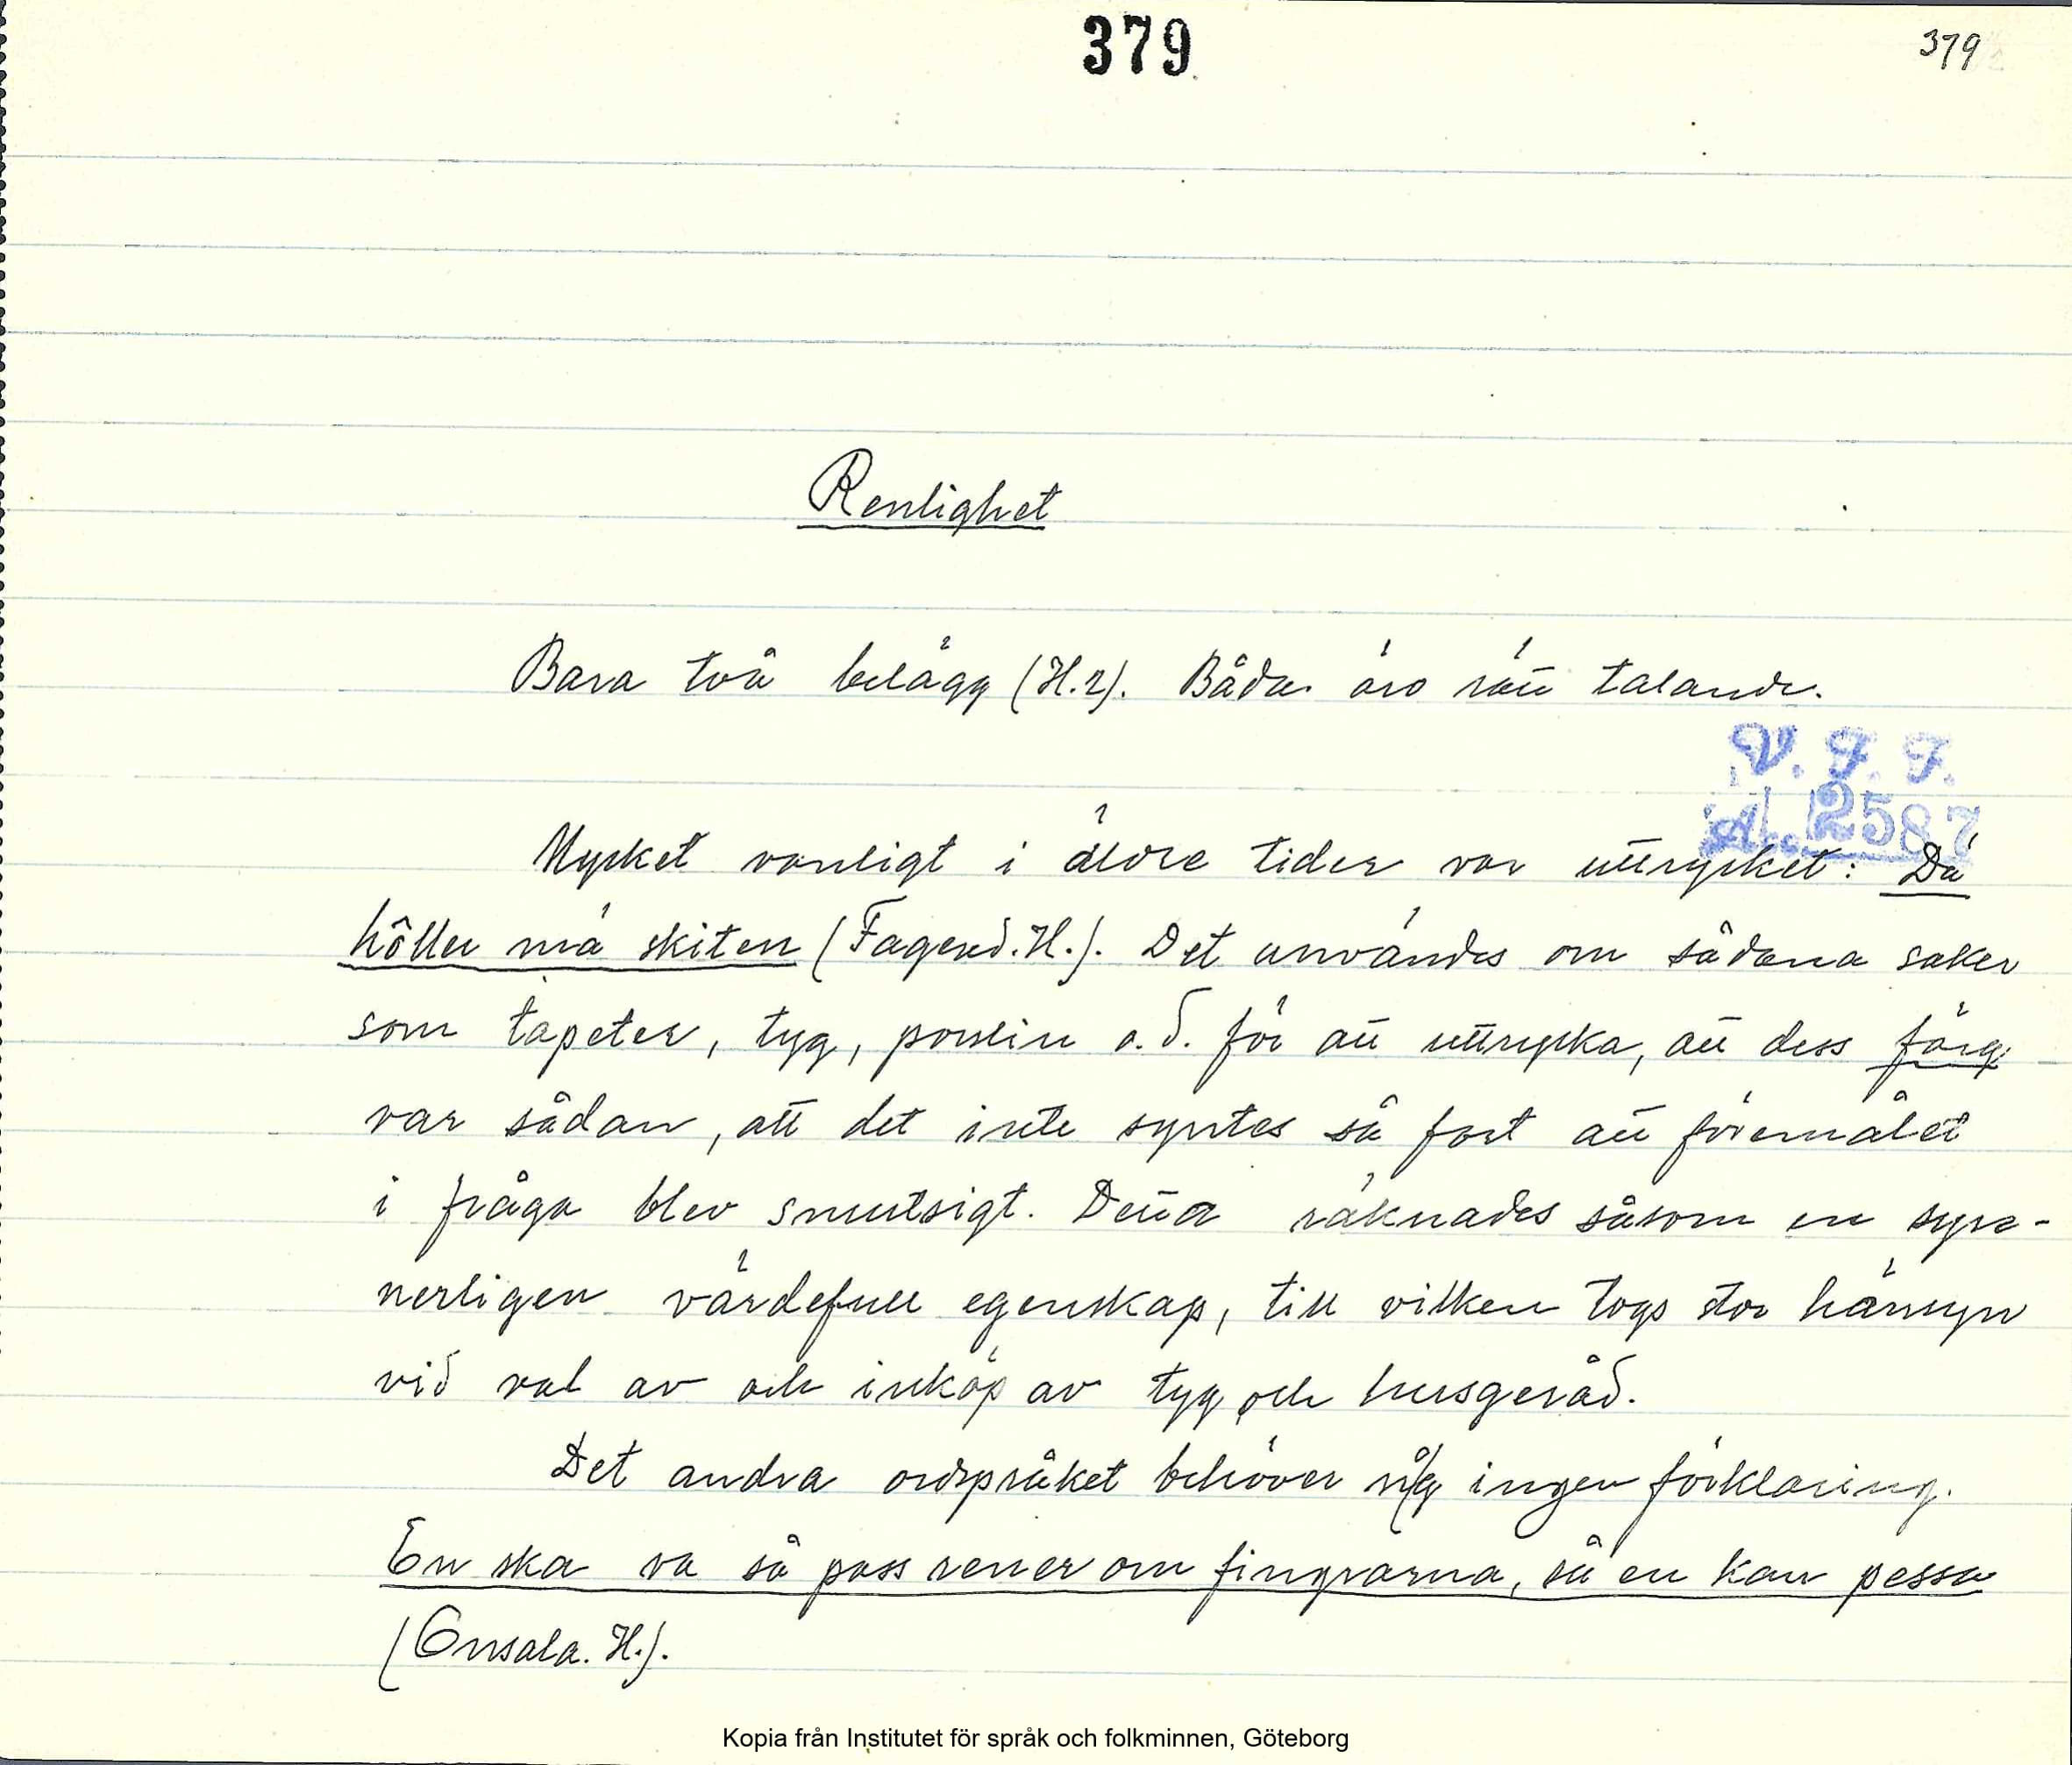 379
379
Renlighet
Bara två belägg (H. 2). Båda äro rätt talande.
V. F. F.
Acc. 2587
Mycket vanligt i äldre tider var uttrycket: Dä
håller mä skiten (Fagered. H.). Det användes om sådana saker
som tapeter, tyg, porslin o.d. för att uttrycka, att dess färg
var sådan, att det inte syntes så fort att föremålet
i fråga blev smutsigt. Detta räknades såsom en synn-
nerligen värdefull egenskap, till vilken togs stor hänsyn
vid val av och inköp av tyg och husgeråd.
Det andra ordspråket behöver nog ingen förklaring.
En ska va så pass rener om fingrarna, så en kan pessa
(Onsala. H.).
Kopia från Institutet för språk och folkminnen, Göteborg